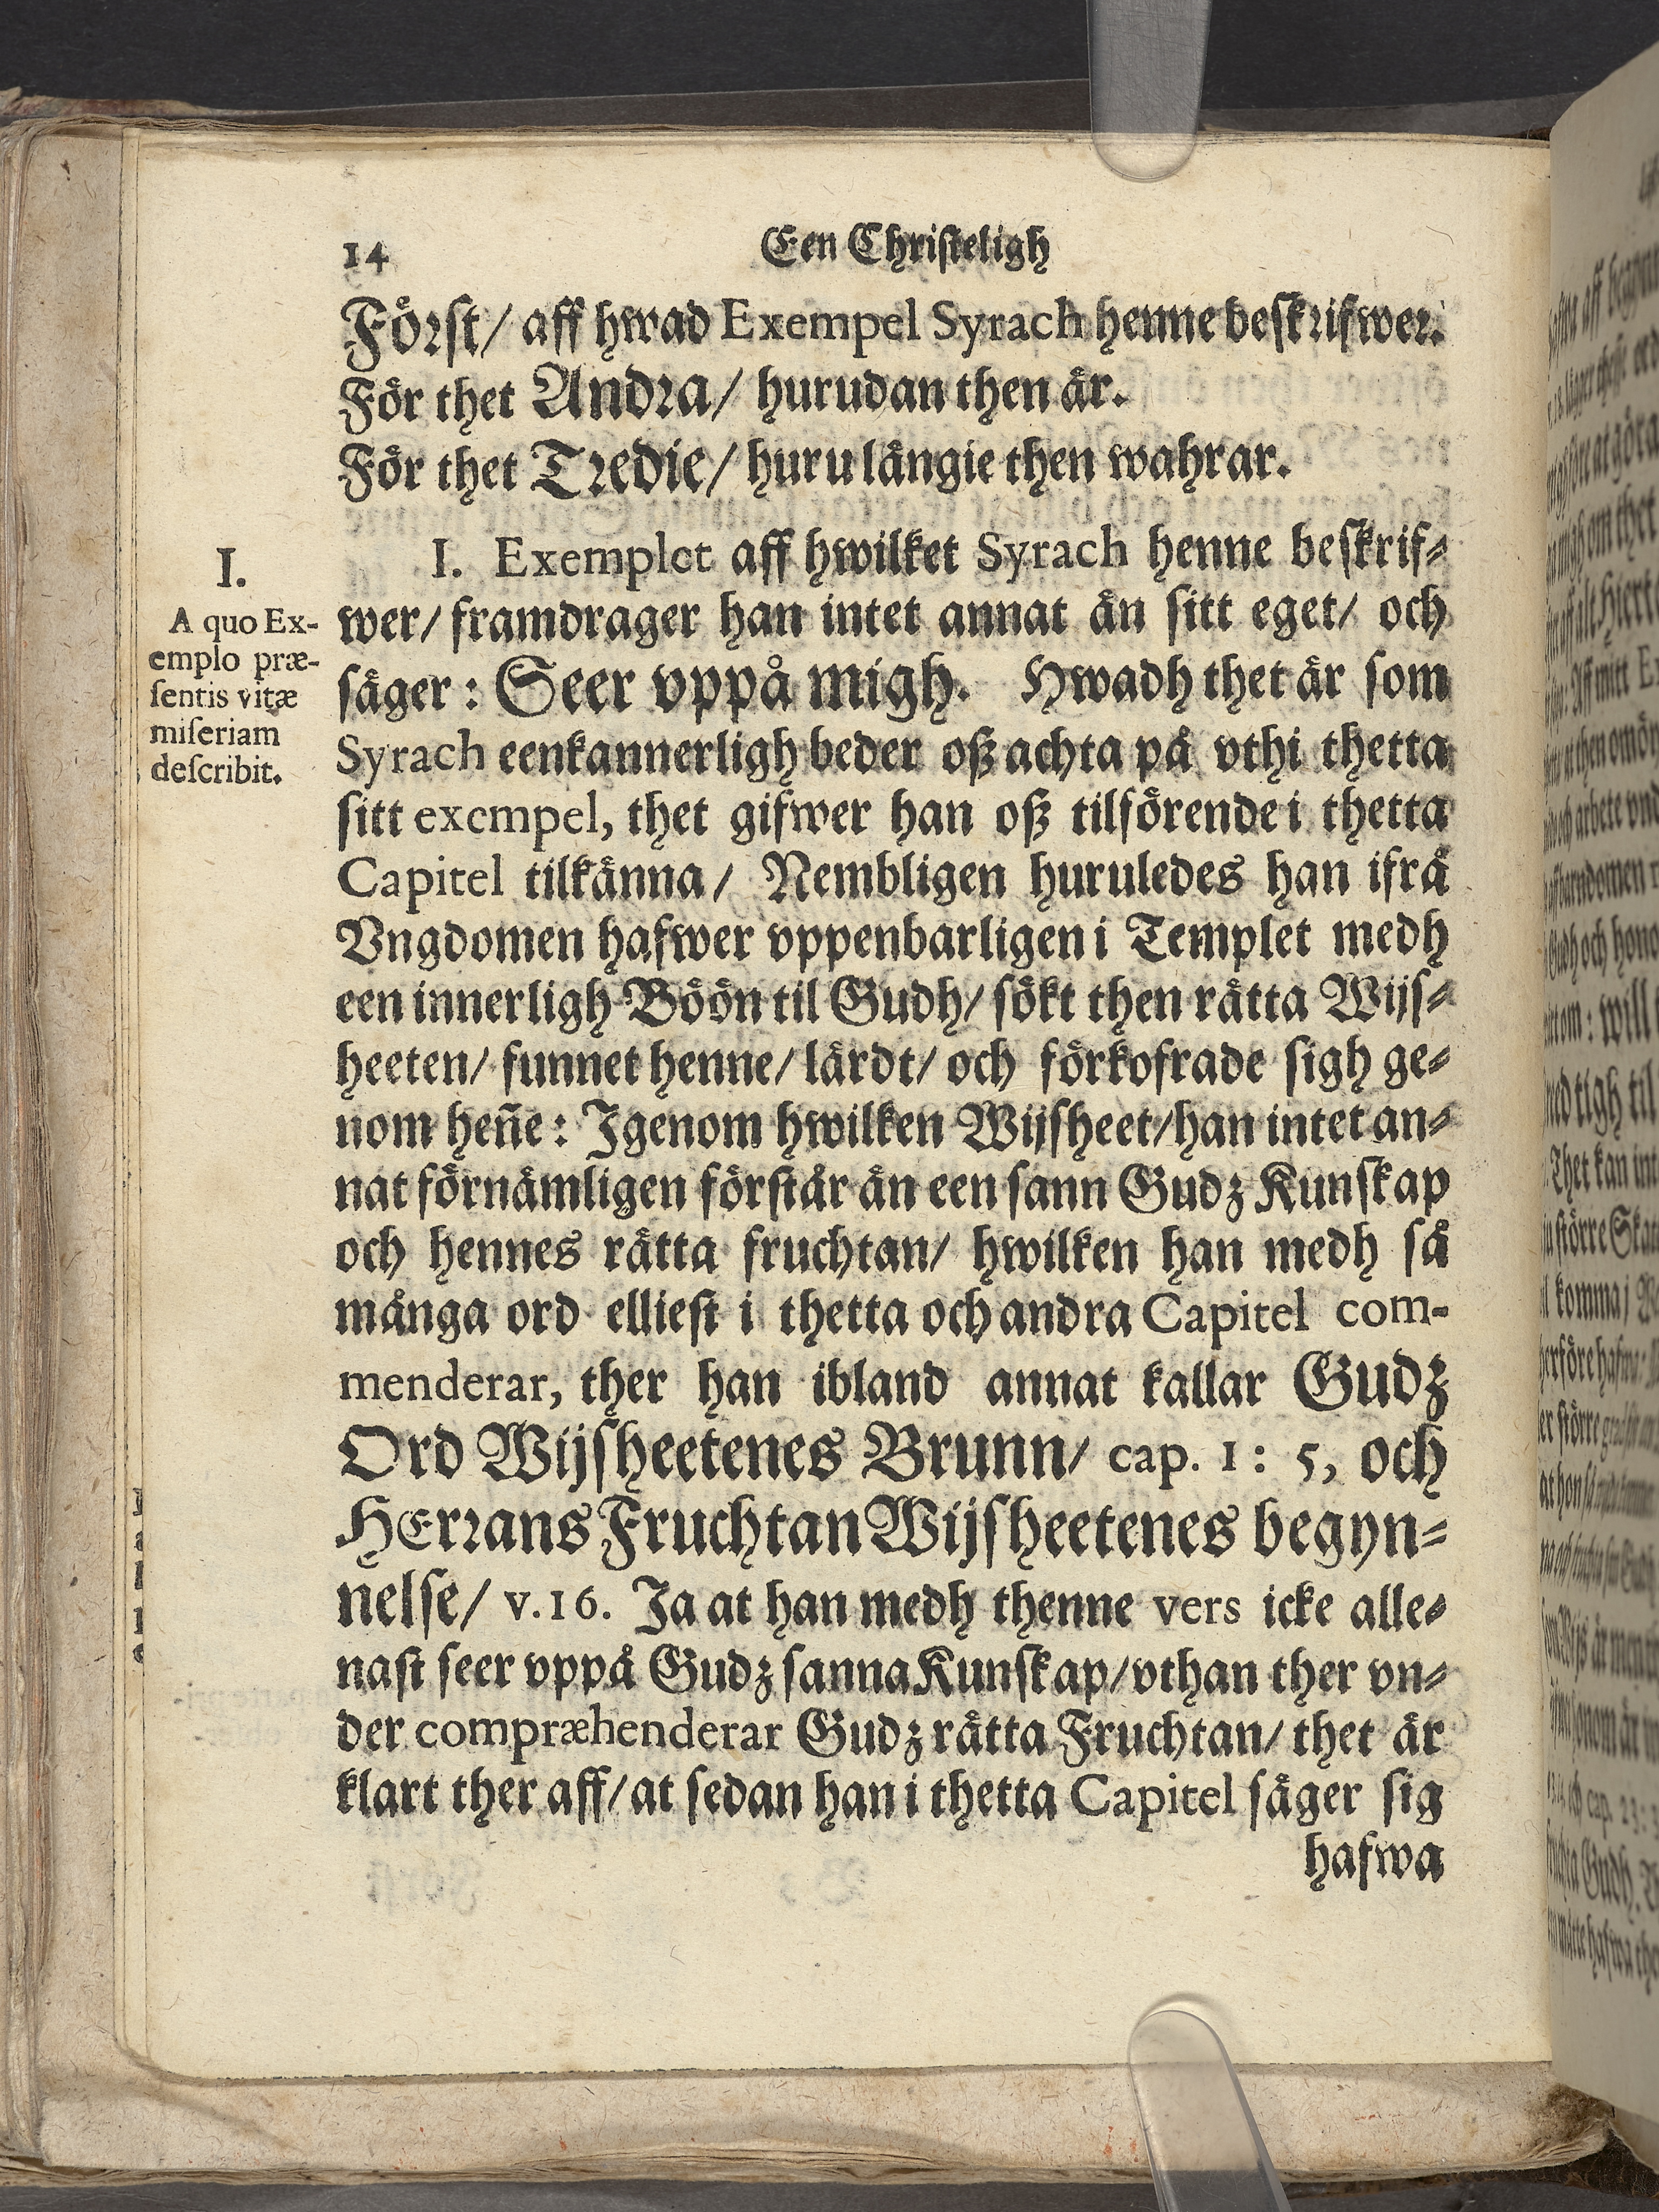 14
Een Christeligh
Först/ aff hwad Exempel Syrach henne beskrifwer.
För thet Andra/ hurudan then är.
För thet Tredie/ huru långie then wahrar.
I.
A quo Ex-
emplo præ-
sentis vitæ
miseriam
describit.
I. Exemplet aff hwilket Syrach henne beskrif-
wer/ framdrager han intet annat än sitt eget/ och
säger: Seer vppå migh. Hwadh thet är som
Syrach eenkannerligh beder oß achta på vthi thetta
sitt exempel, thet gifwer han oß tilförende i thetta
Capitel tilkänna/ Nembligen huruledes han ifrå
Vngdomen hafwer vppenbarligen i Templet medh
een innerligh Böön til Gudh/ sökt then rätta Wijs-
heeten/ funnet henne/ lärdt/ och förkofrade sigh ge-
nom hen̄e: Igenom hwilken Wijsheet/ han intet an-
nat förnämligen förstår än een sann Gudz Kunskap
och hennes rätta fruchtan/ hwilken han medh så
många ord elliest i thetta och andra Capitel com-
menderar, ther han ibland annat kallar Gudz
Ord Wijsheetenes Brunn/ cap. 1: 5, och
HErrans Fruchtan Wijsheetenes begyn-
nelse/ v. 16. Ja at han medh thenne vers icke alle-
nast seer vppå Gudz sanna Kunskap/ vthan ther vn-
der compræhenderar Gudz rätta Fruchtan/ thet är
klart ther aff/ at sedan han i thetta Capitel säger sig
hafwa